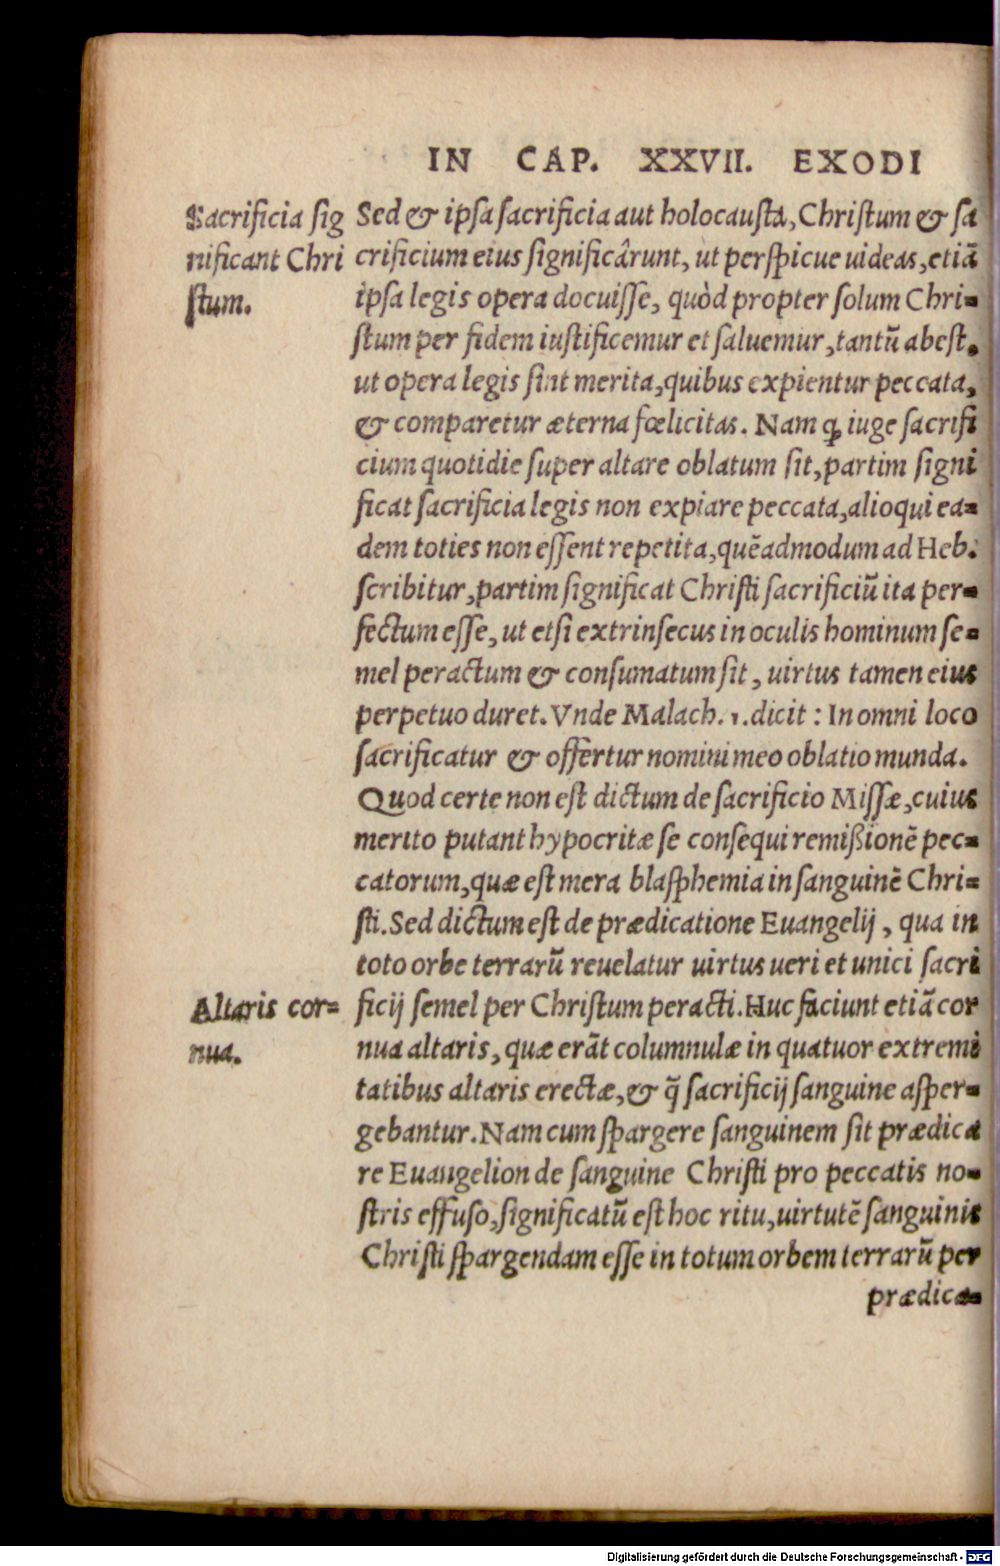 IN CAP. XXVII. EXODI
Sacrificia sig
nificant Chri
ſtum.
Sed & ipſa ſacrificia aut holocauſta, Chriſtum & ſa
crificium eius ſignificârunt, ut perſpicue uideas, etiã
ipſa legis opera docuiſſe, quòd propter ſolum Chri-
ſtum per fidem iuſtificemur et ſaluemur, tantũ abeſt,
ut opera legis ſint merita, quibus expientur peccata,
& comparetur æterna fœlicitas. Nam ꝙ iuge ſacrifi
cium quotidie ſuper altare oblatum ſit, partim ſigni
ficat ſacrificia legis non expiare peccata, alioqui ea-
dem toties non eſſent repetita, quẽadmodum ad Heb.
ſcribitur, partim ſignificat Chriſti ſacrificiũ ita per-
fectum eſſe, ut etſi extrinſecus in oculis hominum ſe-
mel peractum & conſumatum ſit, uirtus tamen eius
perpetuo duret. Vnde Malach. 1. dicit : In omni loco
ſacrificatur & offertur nomini meo oblatio munda.
Quod certe non eſt dictum de ſacrificio Miſſæ, cuius
merito putant hypocritæ ſe conſequi remißionẽ pec-
catorum, quæ eſt mera blaſphemia in ſanguinẽ Chri-
ſti. Sed dictum eſt de prædicatione Euangelij, qua in
toto orbe terrarũ reuelatur uirtus ueri et unici ſacri
Altaris cor-
nua.
ficij ſemel per Chriſtum peracti. Huc faciunt etiã cor
nua altaris, quæ erãt columnulæ in quatuor extremi
tatibus altaris erectæ, & q̃ ſacrificij ſanguine aſper-
gebantur. Nam cum ſpargere ſanguinem ſit prædica
re Euangelion de ſanguine Chriſti pro peccatis no-
ſtris effuſo, ſignificatũ eſt hoc ritu, uirtutẽ ſanguinis
Chriſti ſpargendam eſſe in totum orbem terrarũ per
prædica-
Digitalisierung gefördert durch die Deutsche Forschungsgemeinschaft - DFG